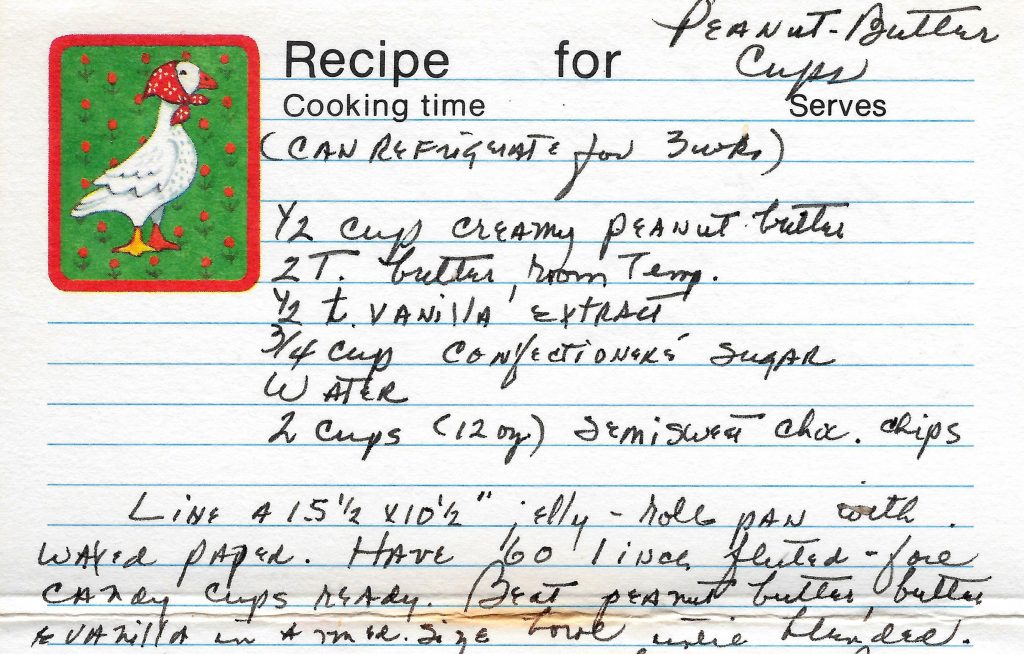 Recipe for Peanut-Butter Cups
Cooking time Serves
(Can Refrigerate for 3 wks)
1/2 cup creamy peanut butter
2 T. butter, room Temp.
1/2 t. vanilla extract
3/4 cup confectioners' sugar
Water
2 cups (12 oz) semisweet choc. chips
Line a 15 1/2 x 10 1/2" jelly-roll pan with
waxed paper. Have 60 1 inch fluted-foil
candy cups ready. Beat peanut butter, butter
& vanilla in a med. size bowl until blended.